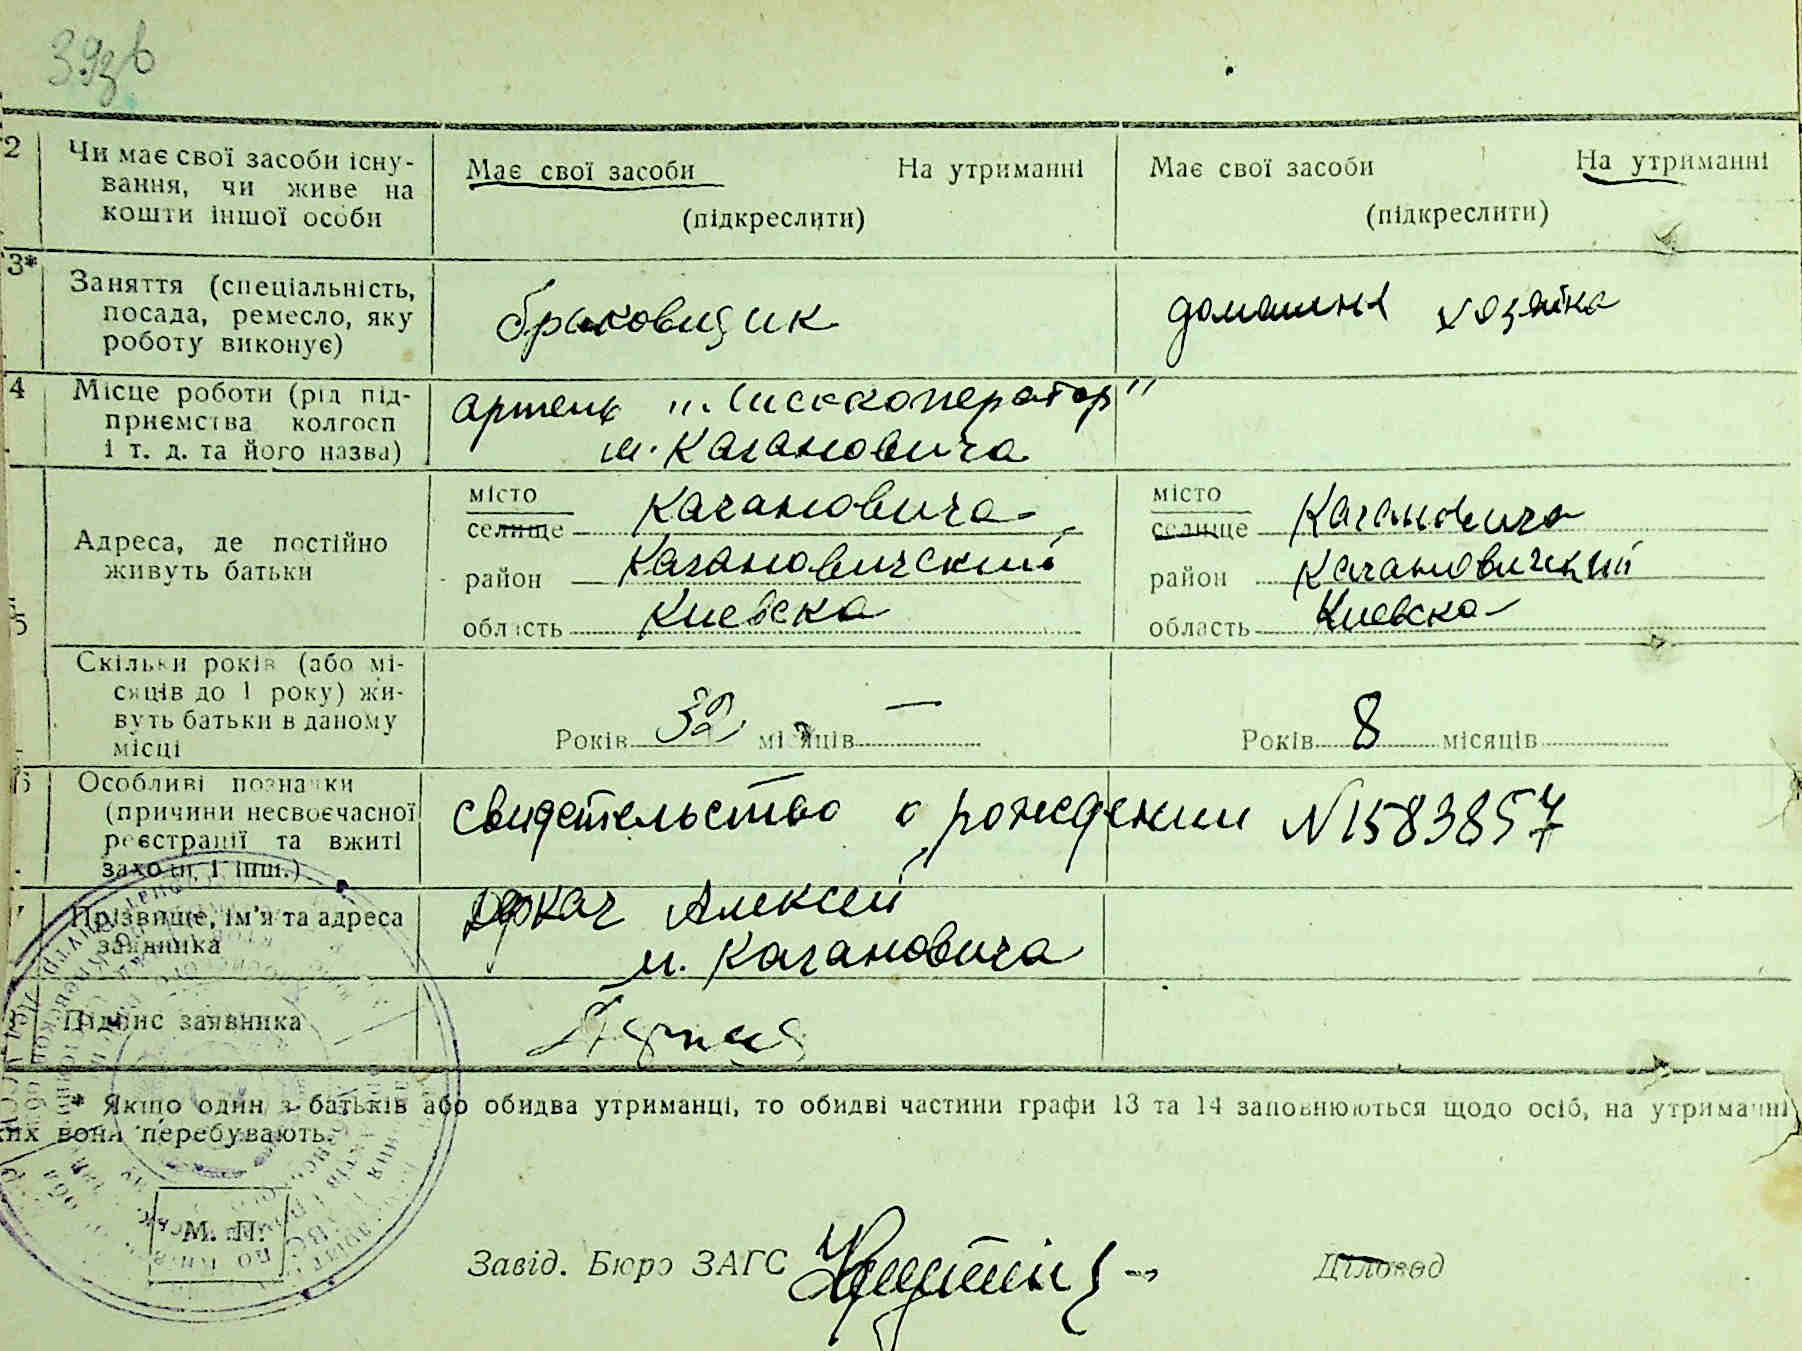 39зв
2 Чи має свої засоби існу- Має свої засоби На утриманні Має свої засоби На утриманні
вання, чи живе на
кошти іншої особи (підкреслити) (підкреслити)
3* Заняття (спеціальність, браковщик домашня хозяйка
посада, ремесло, яку
роботу виконує)
4 Місце роботи (рід під- артель
приємства колгосп
і т. д. та його назва) м. Кагановича
5 Адреса, де постійно місто Кагановича місто Кагановича
живуть батьки селище селище
район Кагановичский район Кагановичский
область Киевска область Киевска
Скільки років (або мі-
сяців до 1 року) жи-
вуть батьки в даному
місці Років 32 місяців — Років 8 місяців
6 Особливі позначки свидетельство о рождении N1583857
(причини несвоєчасної
реєстрації та вжиті
заходи і інш.)
7 Прізвище, ім'я та адреса Деркач Алексей
заявника м. Кагановича
Підпис заявника
* Якщо один з батьків або обидва утриманці, то обидві частини графи 13 та 14 заповнюються щодо осіб, на утриманні
ких вони перебувають.
М. П.
Завід. Бюро ЗАГС Діловод